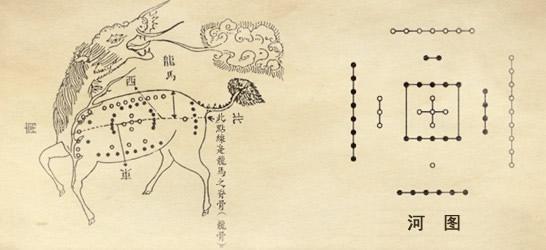 龍馬
西
南
北
東
此點線是龍馬之脊骨（龍骨）
河图